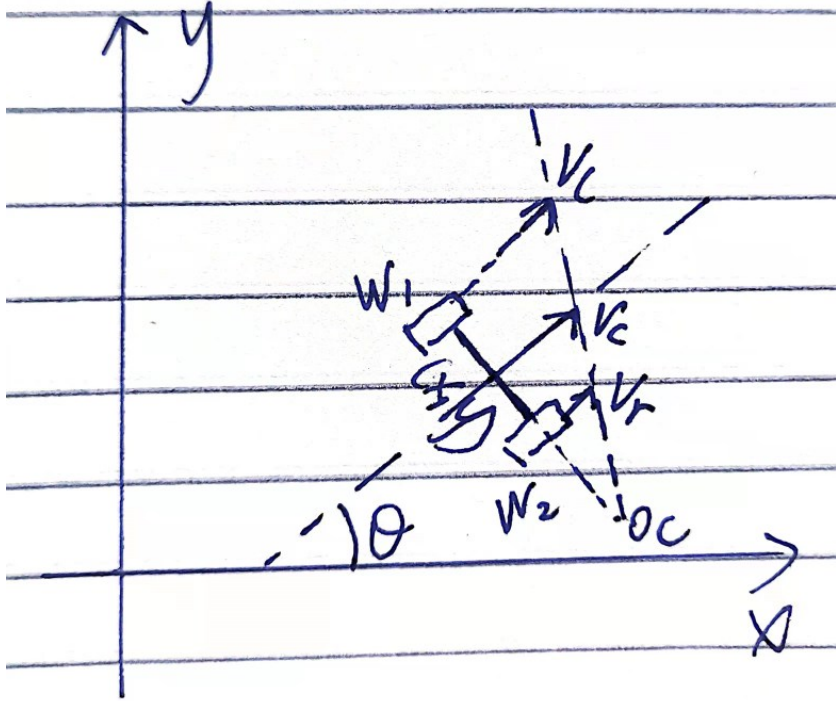 y
V_l
W_1
V_c
V_r
W_2
O_c
θ
x